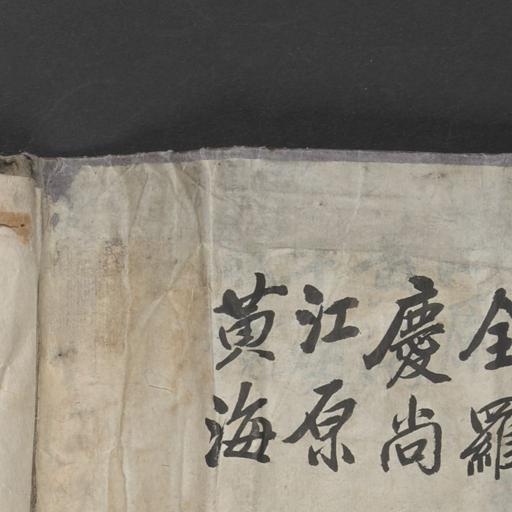 全羅
慶尚
江原
黄海